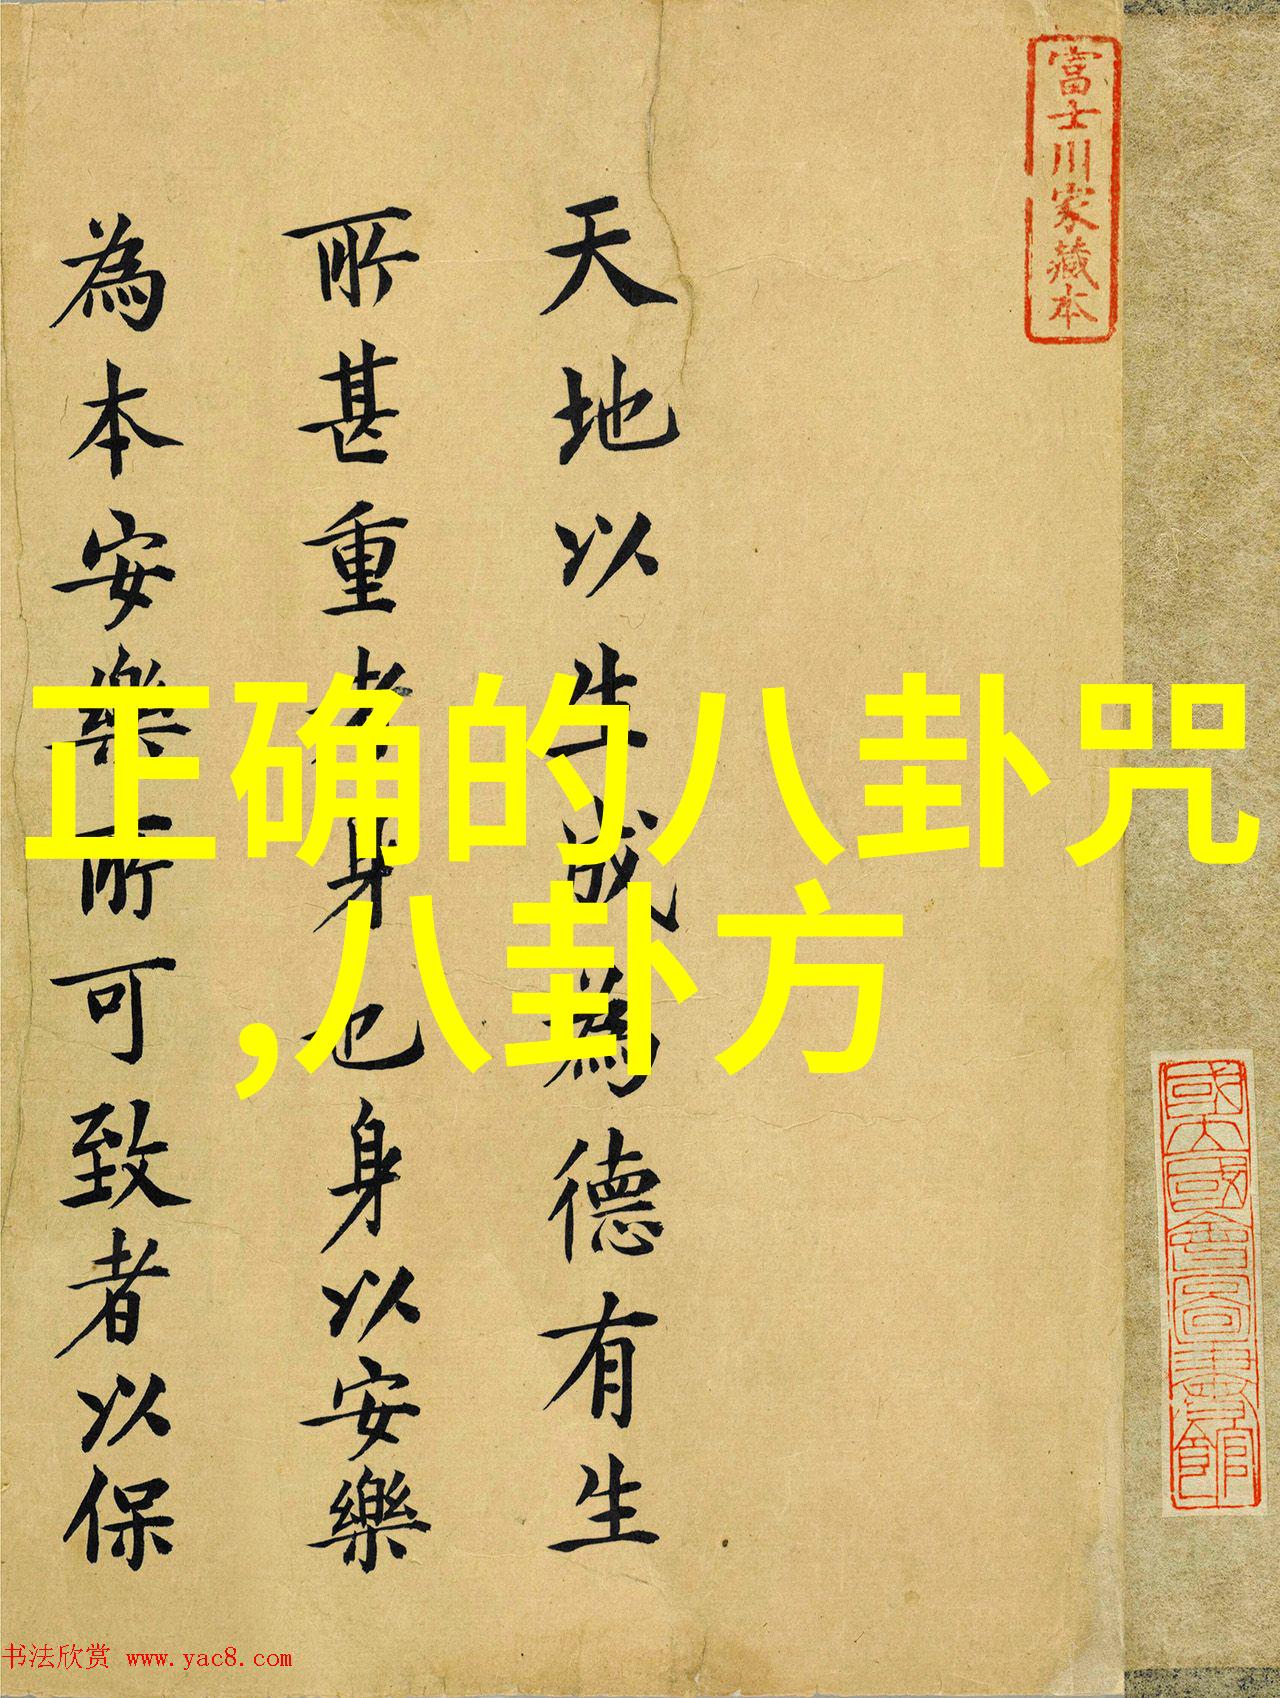 富士川家藏本
天地以生成為德有生
所甚重者身也身以安樂
為本安樂所可致者以保
正确的八卦咒
,八卦方
國立國會圖書館
书法欣赏 www.yac8.com